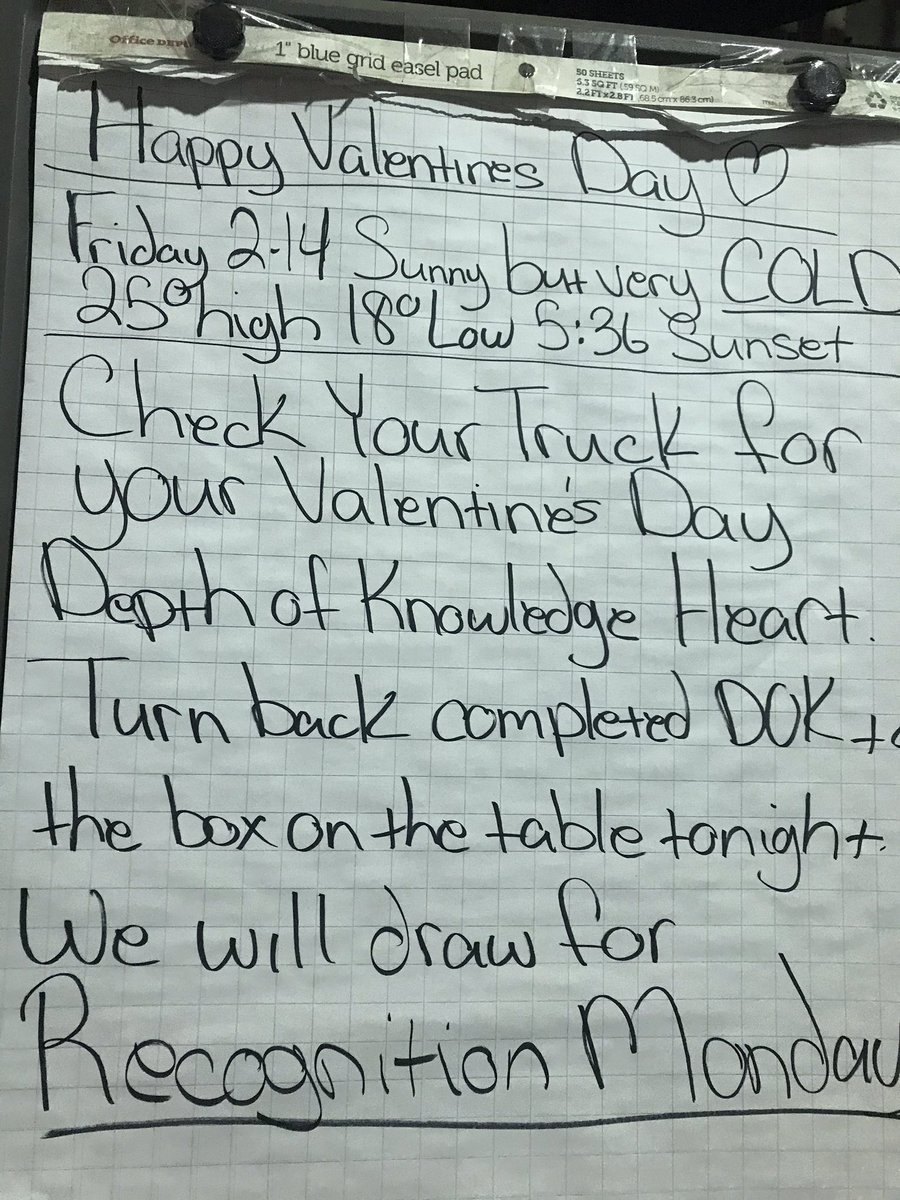 Office DEPO
1" blue grid easel pad
50 SHEETS
2.2 FT x 2.8 FT (68.5 cm x 86.3 cm)
Happy Valentines Day ♡
Friday 2-14 Sunny but very COLD
25° high 18° Low 5:36 Sunset
Check Your Truck for
your Valentine's Day
Depth of Knowledge Heart.
Turn back completed DOK to
the box on the table tonight.
We will draw for
Recognition Monday